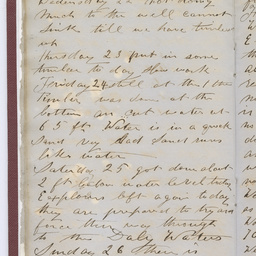 Wednesday 22 Not doing
much to the well cannot
sink till we have timber
up
Thursday 23 put in some
timber to day slow work
Friday 24 still at the
timber was down at the
bottom an got water at
65 fts Water is in a quick
Sand very bad Sand runs
like water
Saturday 25 got down about
2 ft below water level today
Explorers left again today
they are prepared to try an
force their way through
to the Daly Waters
Sunday 26 there is